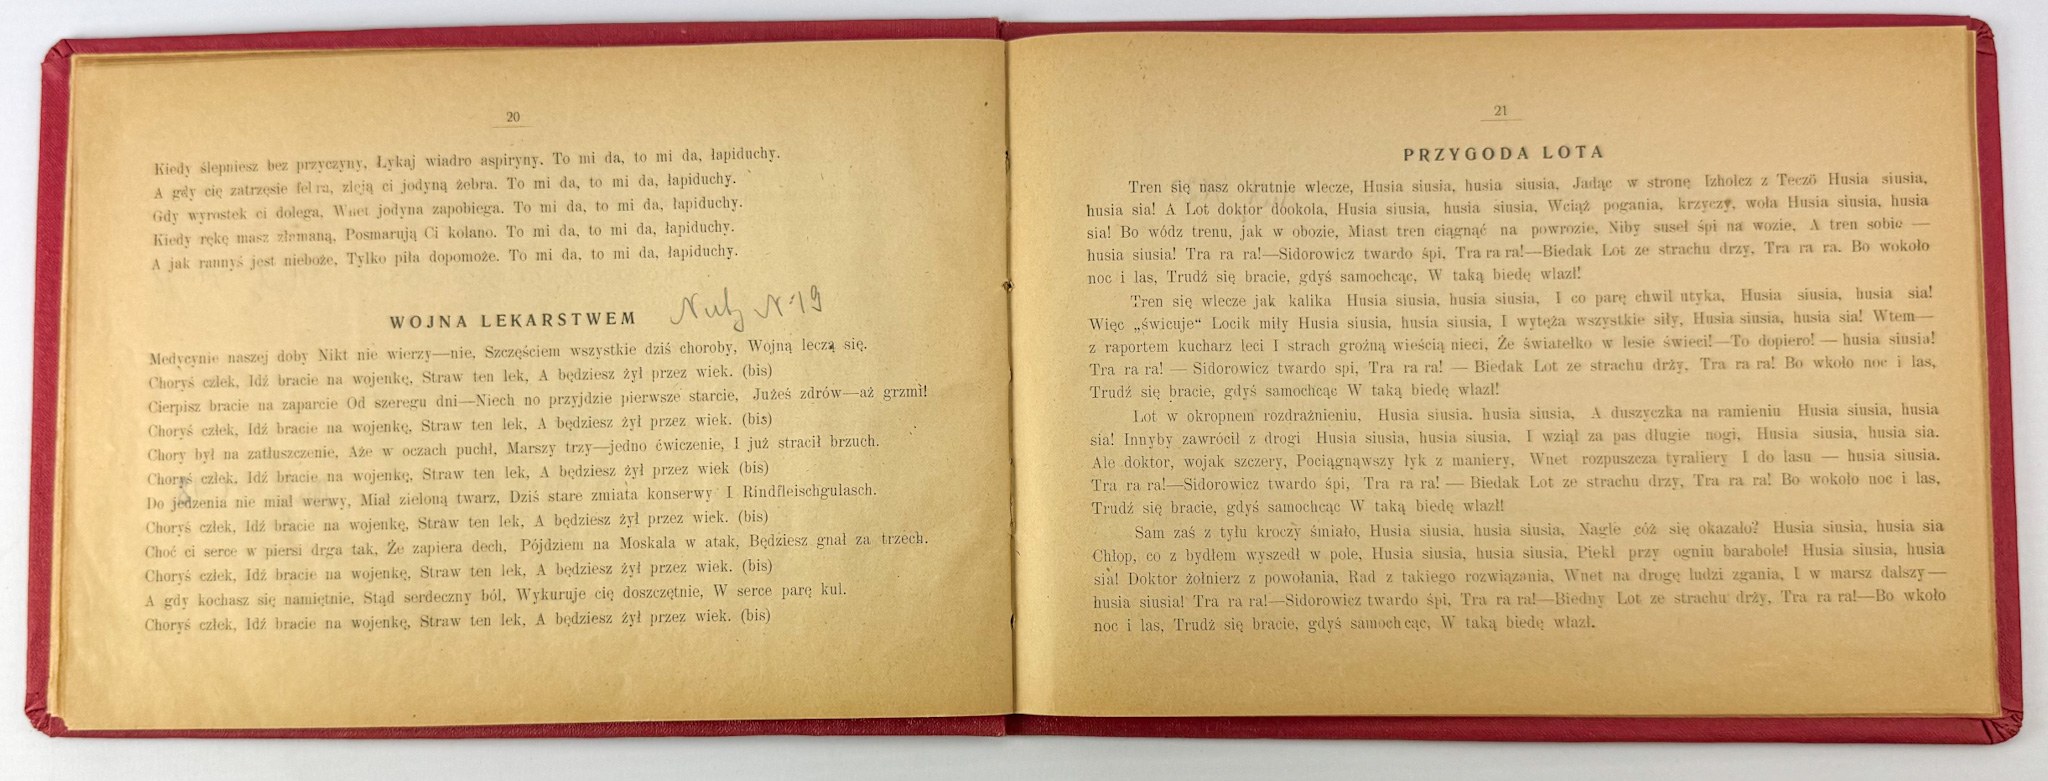 20
Kiedy ślepniesz bez przyczyny, Łykaj wiadro aspiryny. To mi da, to mi da, łapiduchy.
A gdy cię zatrzęsie febra, zleją ci jodyną żebra. To mi da, to mi da, łapiduchy.
Gdy wyrostek ci dolega, Wnet jodyna zapobiega. To mi da, to mi da, łapiduchy.
Kiedy rękę masz złamaną, Posmarują Ci kolano. To mi da, to mi da, łapiduchy.
A jak rannyś jest nieboże, Tylko piła dopomoże. To mi da, to mi da, łapiduchy.
WOJNA LEKARSTWEM
Nuty N 19
Medycynie naszej doby Nikt nie wierzy—nie, Szczęściem wszystkie dziś choroby, Wojną leczą się.
Choryś człek, Idź bracie na wojenkę, Straw ten lek, A będziesz żył przez wiek. (bis)
Cierpisz bracie na zaparcie Od szeregu dni—Niech no przyjdzie pierwsze starcie, Jużeś zdrów—aż grzmi!
Choryś człek, Idź bracie na wojenkę, Straw ten lek, A będziesz żył przez wiek. (bis)
Chory był na zatłuszczenie, Aże w oczach puchł, Marszy trzy—jedno ćwiczenie, I już stracił brzuch.
Choryś człek, Idź bracie na wojenkę, Straw ten lek, A będziesz żył przez wiek (bis)
Do jedzenia nie miał werwy, Miał zieloną twarz, Dziś stare zmiata konserwy I Rindfleischgulasch.
Choryś człek, Idź bracie na wojenkę, Straw ten lek, A będziesz żył przez wiek. (bis)
Choć ci serce w piersi drga tak, Że zapiera dech, Pójdziem na Moskala w atak, Będziesz gnał za trzech.
Choryś człek, Idź bracie na wojenkę, Straw ten lek, A będziesz żył przez wiek. (bis)
A gdy kochasz się namiętnie, Stąd serdeczny ból, Wykuruje cię doszczętnie, W serce parę kul.
Choryś człek, Idź bracie na wojenkę, Straw ten lek, A będziesz żył przez wiek. (bis)
21
PRZYGODA LOTA
Tren się nasz okrutnie wlecze, Husia siusia, husia siusia, Jadąc w stronę Izholcz z Teczö Husia siusia,
husia sia! A Lot doktor dookoła, Husia siusia, husia siusia, Wciąż pogania, krzyczy, woła Husia siusia, husia
sia! Bo wódz trenu, jak w obozie, Miast tren ciągnąć na powrozie, Niby suseł śpi na wozie, A tren sobie —
husia siusia! Tra ra ra!—Sidorowicz twardo śpi, Tra ra ra!—Biedak Lot ze strachu drzy, Tra ra ra. Bo wokoło
noc i las, Trudź się bracie, gdyś samochcąc, W taką biedę wlazł!
Tren się wlecze jak kalika Husia siusia, husia siusia, I co parę chwil utyka, Husia siusia, husia sia!
Więc „świcuje“ Locik miły Husia siusia, husia siusia, I wytęża wszystkie siły, Husia siusia, husia sia! Wtem—
z raportem kucharz leci I strach groźną wieścią nieci, Że światełko w lesie świeci!—To dopiero! — husia siusia!
Tra ra ra! — Sidorowicz twardo spi, Tra ra ra! — Biedak Lot ze strachu drży, Tra ra ra! Bo wkoło noc i las,
Trudź się bracie, gdyś samochcąc W taką biedę wlazł!
Lot w okropnem rozdrażnieniu, Husia siusia, husia siusia, A duszyczka na ramieniu Husia siusia, husia
sia! Innyby zawrócił z drogi Husia siusia, husia siusia, I wziął za pas długie nogi, Husia siusia, husia sia.
Ale doktor, wojak szczery, Pociągnąwszy łyk z maniery, Wnet rozpuszcza tyraliery I do lasu — husia siusia.
Tra ra ra!—Sidorowicz twardo śpi, Tra ra ra! — Biedak Lot ze strachu drzy, Tra ra ra! Bo wokoło noc i las,
Trudź się bracie, gdyś samochcąc W taką biedę wlazł!
Sam zaś z tyłu kroczy śmiało, Husia siusia, husia siusia, Nagle cóż się okazało? Husia siusia, husia sia
Chłop, co z bydłem wyszedł w pole, Husia siusia, husia siusia, Piekł przy ogniu barabole! Husia siusia, husia
sia! Doktor żołnierz z powołania, Rad z takiego rozwiązania, Wnet na drogę ludzi zgania, I w marsz dalszy—
husia siusia! Tra ra ra!—Sidorowicz twardo śpi, Tra ra ra!—Biedny Lot ze strachu drży, Tra ra ra!—Bo wkoło
noc i las, Trudź się bracie, gdyś samochcąc, W taką biedę wlazł.